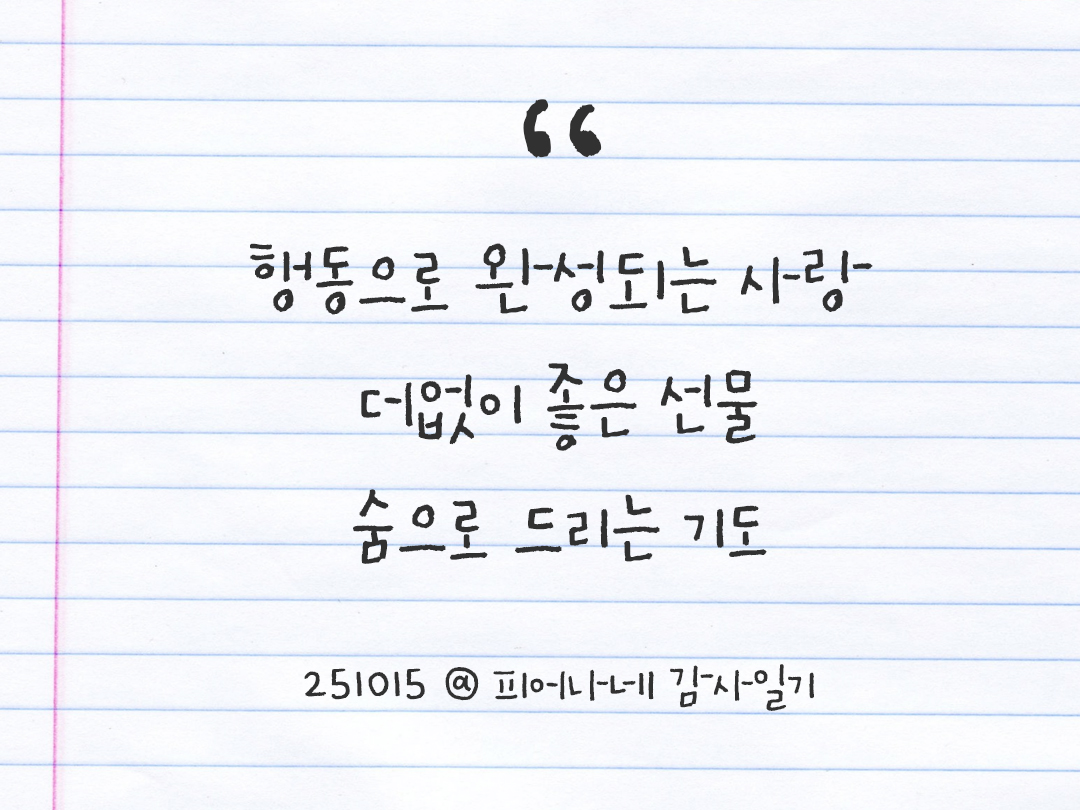 “
행동으로 완성되는 사랑
더없이 좋은 선물
숨으로 드리는 기도
251015 @ 피어나네 감사일기